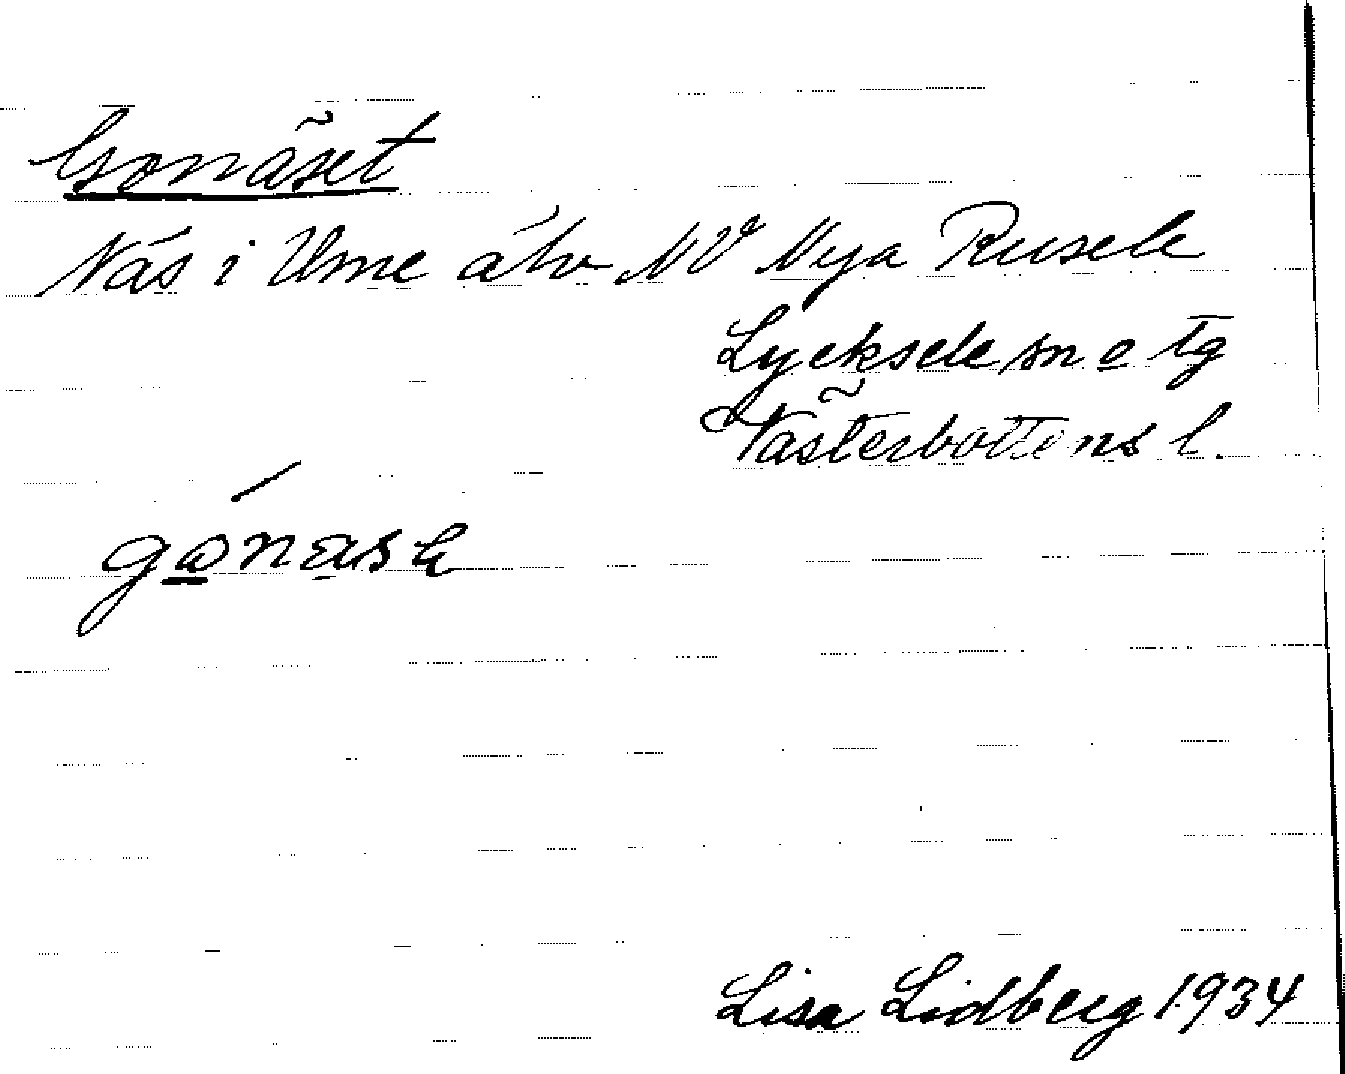 Gonäset
Näs i Ume älv NV Nya Rusele
Lycksele sn o tg
Västerbottens l.
Lisa Lidberg 1934